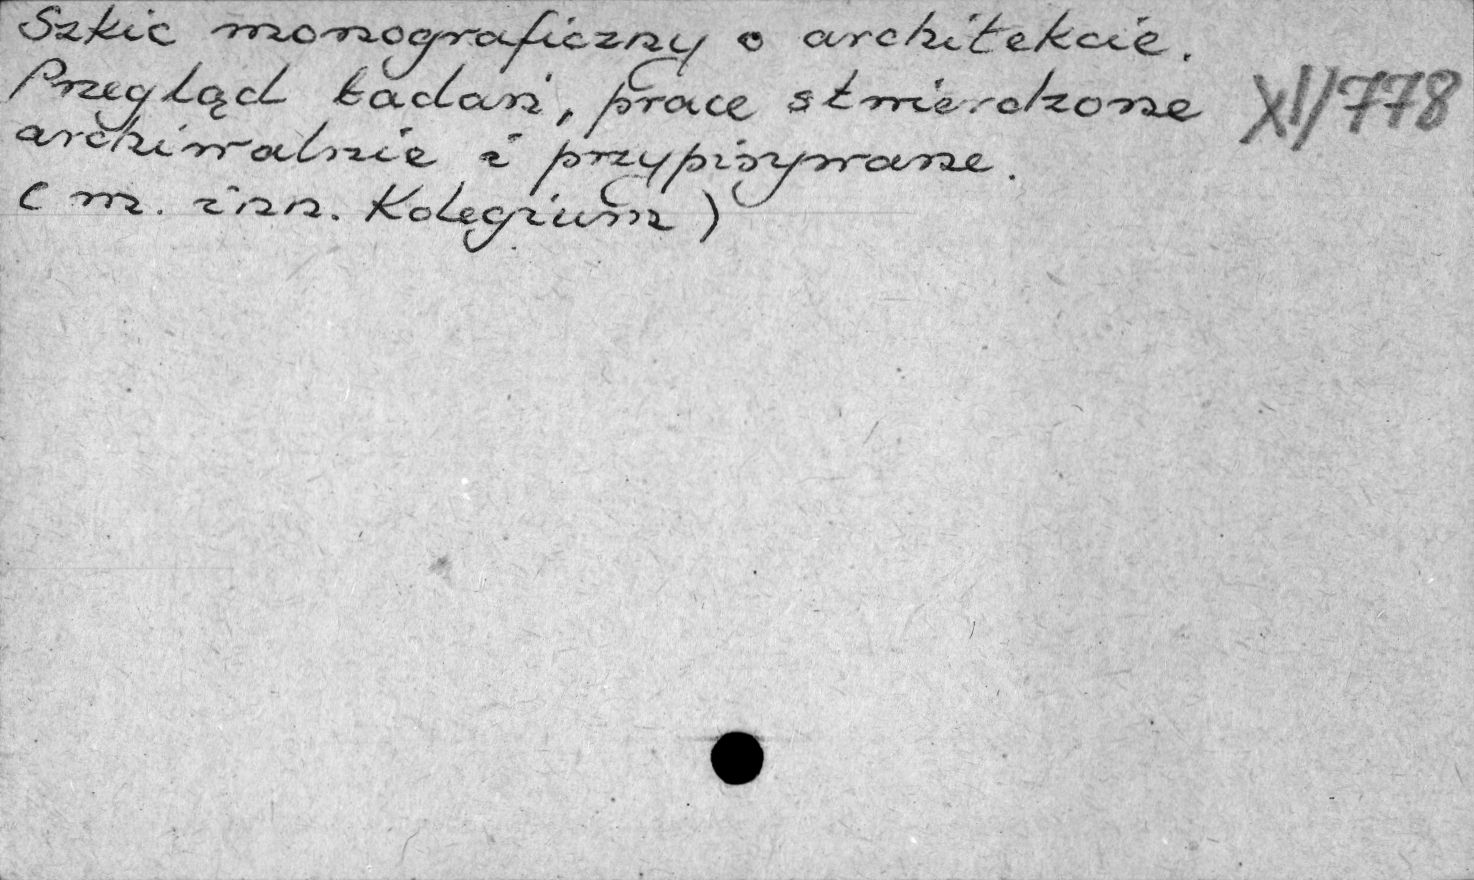 Szkic monograficzny o architekcie.
Przegląd badań, prace stwierdzone
archiwalnie i przypisywane.
(m. inn. Kolegium)
XI/778